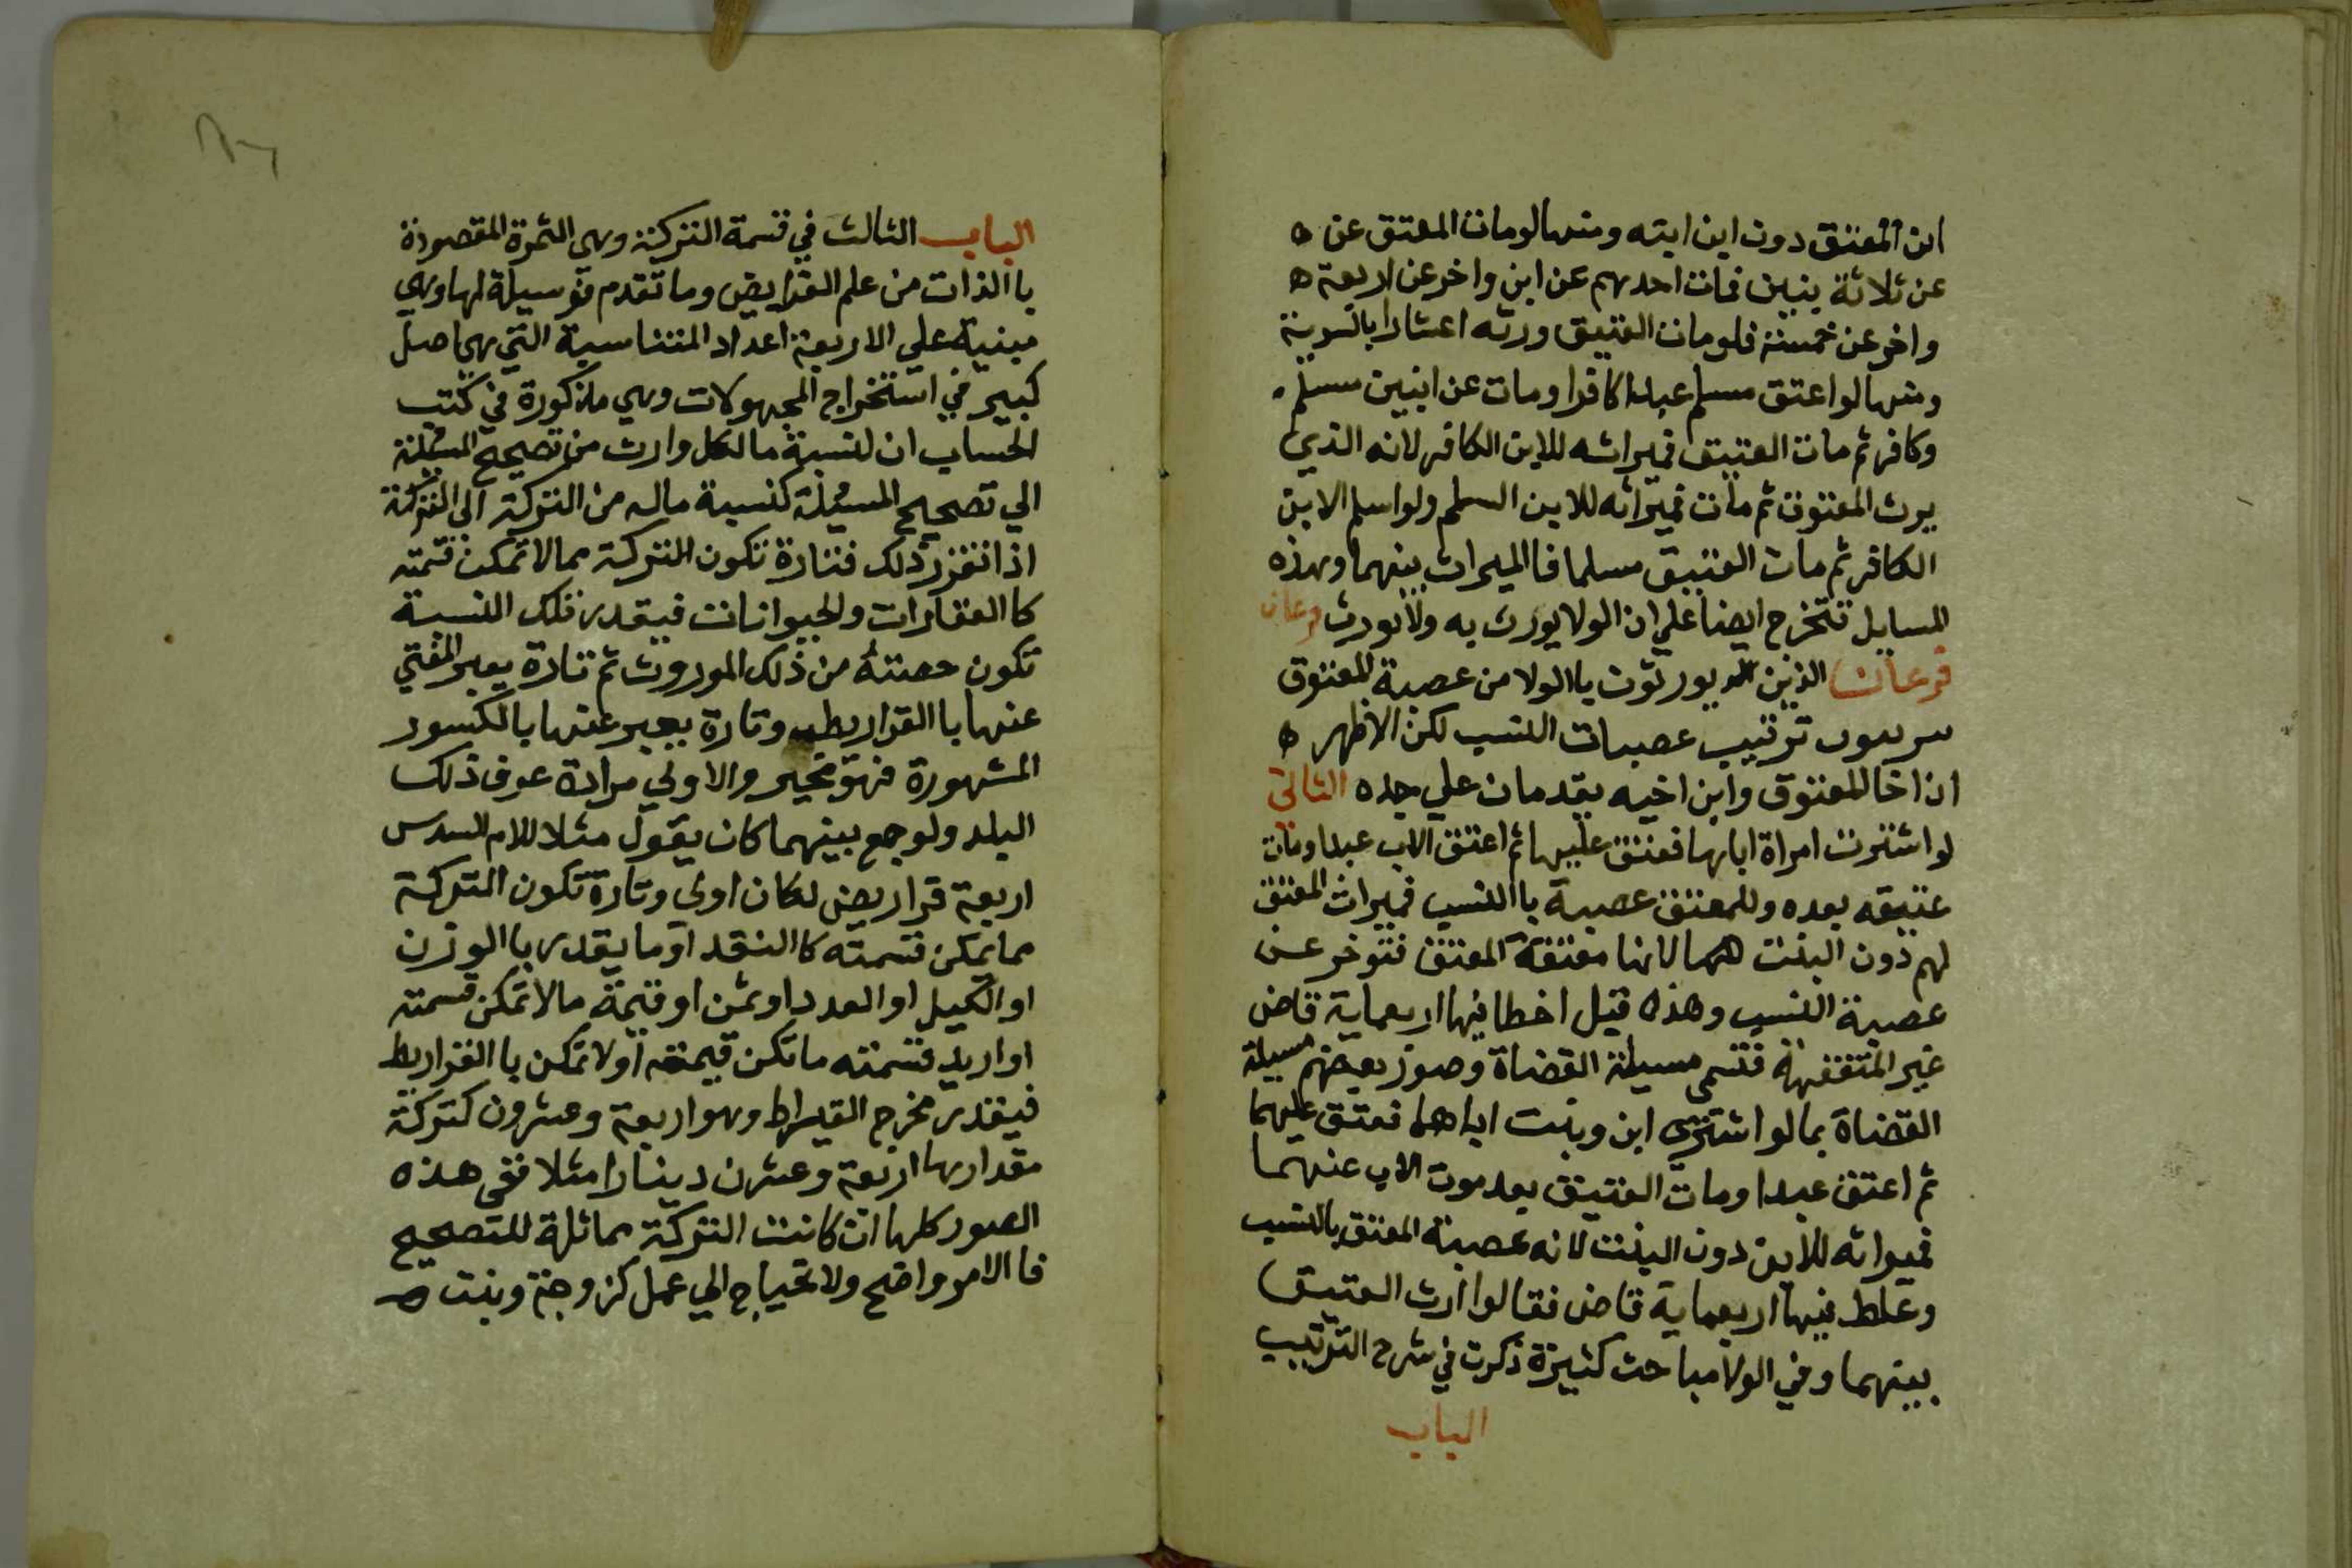 ابن المعتق دون ابن ابنه ومنها لو مات المعتق عن ه
عن ثلاثة بنين فمات احدهم عن ابن واخر عن اربعة ه
واخر عن خمسة فلو مات العتيق ورثه اعشارا بالسوية
ومنها لو اعتق مسلم عبدا كافرا ومات عن ابنين مسلم
وكافر ثم مات العتيق فميراثه للابن الكافر لانه الذي
يرث المعتوق ثم مات فميراثه للابن المسلم ولو اسلم الابن
الكافر ثم مات العتيق مسلما فا الميراث بينهما وهذه
المسايل تتخرج ايضا علي ان الولا يورث به ولا يورث فرعان
فرعان الذين يورثون با الولا من عصبة المعتوق
ترتيب عصبات النسب لكن الاظهر ه
ان اخا المعتوق وابن اخيه يقدمان علي جده الثاني
لو اشترت امراة اباها فعتق عليها ثم اعتق الاب عبدا ومات
عتيقه بعده وللمعتق عصبة با النسب فميراث المعتق
لهم دون البنت لانها معتقة المعتق فتوخر عن
عصبة النسب وهذه قيل اخطا فيها اربعماية قاض
غير المتفقهة فتسمى مسيلة القضاة وصور بعضهم مسيلة
القضاة بما لو اشترى ابن وبنت اباهما فعتق عليهما
ثم اعتق عبدا ومات العتيق بعد موت الاب عنهما
فميراثه للابن دون البنت لانه عصبة المعتق بالنسب
وغلط فيها اربعماية قاض فقالوا ارث العتيق
بينهما وفي الولا مباحث كثيرة ذكرت في شرح الترتيب
الباب
الباب الثالث في قسمة التركة وهى الثمرة المقصودة
با الذات من علم الفرايض وما تقدم فوسيلة لها وهي
مبنية علي الاربعة اعداد المتناسبة التي هي اصل
كبير في استخراج المجهولات وهي مذكورة في كتب
الحساب ان لنسبة ما لكل وارث من تصحيح المسيلة
الي تصحيح المسيلة كنسبة ماله من التركة الي التركة
اذا تقرر ذلك فتارة تكون التركة مما لا تمكن قسمته
كا العقارات والحيوانات فيقدر تلك النسبة
تكون حصته من ذلك الموروث ثم تارة يعبر المفتي
عنها با القراريط وتارة يعبر عنها بالكسور
المشهورة فهو مخير والاولي مراده عرف ذلك
البلد ولو جمع بينهما كان يقول مثلا للام السدس
اربعة قراريض لكان اولى وتارة تكون التركة
مما يمكن قسمته كا النقد او ما يقدر با الوزن
او الكيل او العدد او ثمن او قيمة مالا تمكن قسمته
او اريد قسمته ما تكن قيمته اولا تمكن با القراريط
فيقدر مخرج القيراط وهو اربعة وعشرون كتركة
مقدارها اربعة وعشرن دينارا مثلا ففى هذه
الصور كلها ان كانت التركة مماثلة للتصحيح
فا الامر واضح ولا تحتياج الي عمل كزوجة وبنت